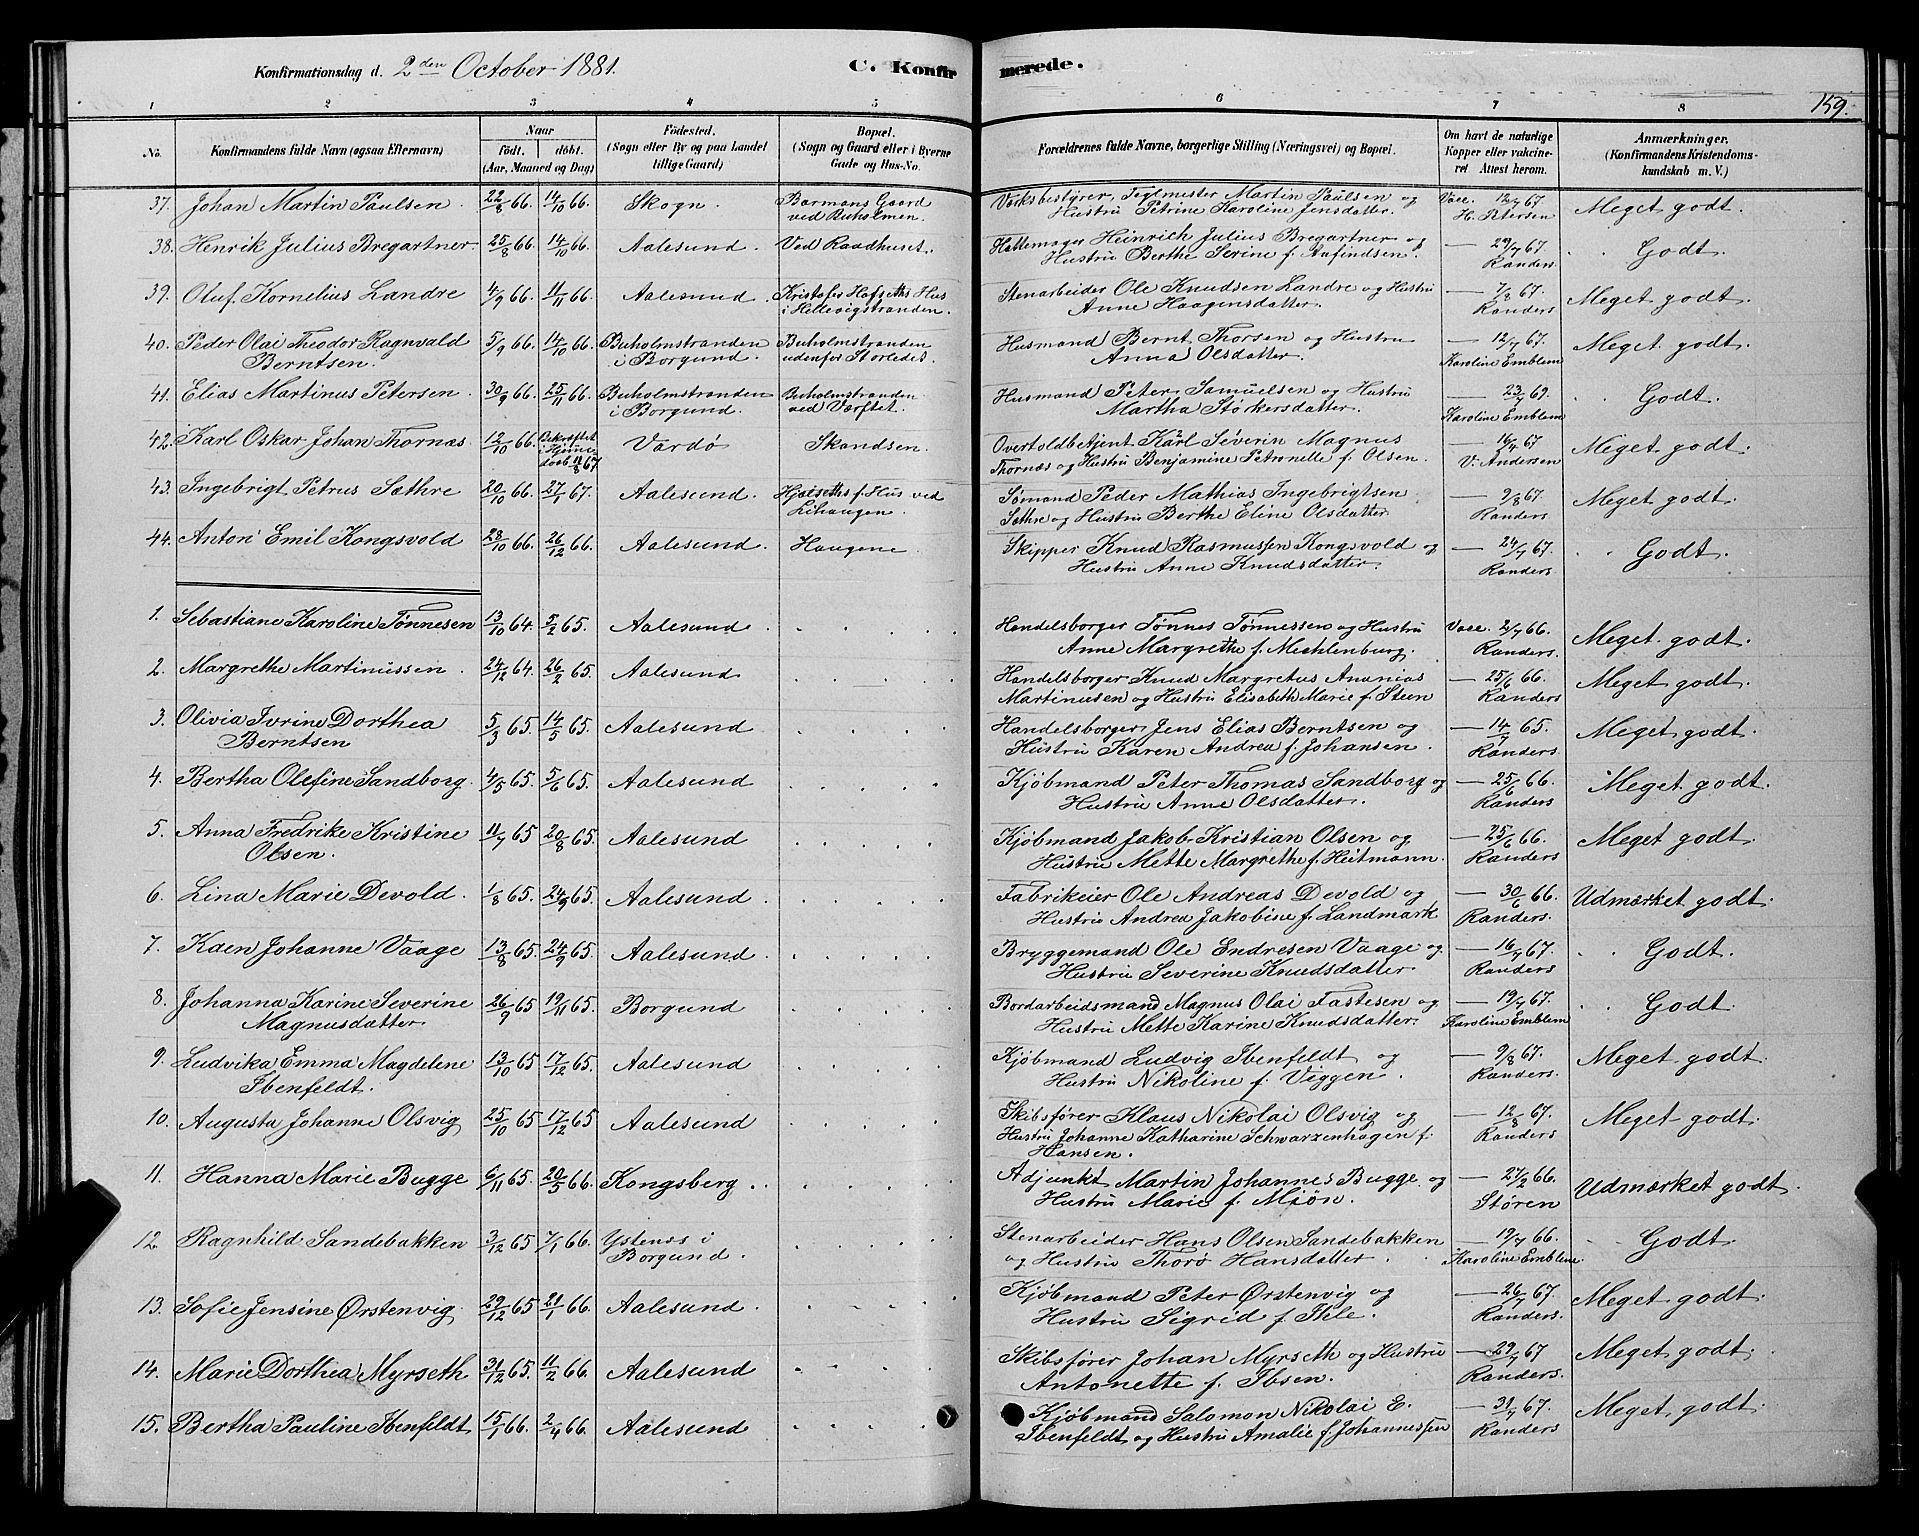 Konfirmationsdag d. 2den October 1881.
C. Konfirmerede.
159.
1 2 3 4 5 6 7 8
No.
Konfirmandens fulde Navn (ogsaa Efternavn)
Naar
født. døbt.
(Aar, Maaned og Dag)
Fødested.
(Sogn eller By og paa Landet
tillige Gaard)
Bopæl.
(Sogn og Gaard eller i Byerne
Gade og Hus-No.
Forældrenes fulde Navne, borgerlige Stilling (Næringsvei) og Bopæl.
Om havt de naturlige
Kopper eller vakcine-
ret Attest herom.
Anmærkninger.
(Konfirmandens Kristendoms-
kundskab m. V.)
37. Johan Martin Paulsen. 22/8 66. 14/10 66. Skogn. Barmans Gaard
ved Buholmen.
Værksbestyrer, Teglmester Martin Paulsen og
Hustru Petrine Karoline Jensdatter.
Vacc. 12/7 67
H. Petersen
Meget godt.
38. Henrik Julius Bregartner. 25/8 66. 14/10 66. Aalesund. Ved Raadhuset.
Hattemager Heinrich Julius Bregartner og
Hustru Berthe Serine f. Aafindsen.
— 29/7 67.
Randers
Godt.
39. Oluf Kornelius Landre 4/9 66. 11/11 66. Aalesund. Kristofer Hofseths Hus
i Hellevigstranden.
Stenarbeider Ole Knudsen Landre og Hustru
Anne Haagensdatter.
— 7/8 67.
Randers
Meget godt.
40. Peder Olai Theodor Ragnvald
Berntsen. 5/9 66. 14/10 66. Buholmstranden
i Borgund. Buholmstranden
udenfor Storledet.
Husmand Bernt Thorsen og Hustru
Anna Olsdatter.
— 12/7 67.
Karoline Emblem
Meget godt.
41. Elias Martinus Petersen. 30/9 66. 25/11 66. Buholmstranden
i Borgund. Buholmstranden
ved Værftet.
Husmand Peter Samuelsen og Hustru
Martha Størkersdatter.
— 23/7 69.
Karoline Emblem
Godt.
42. Karl Oskar Johan Thornæs 12/10 66. Bekræftet
i Hjemme-
daab 11/8 67 Vardø Skandsen.
Overtoldbetjent Karl Severin Magnus
Thornæs og Hustru Benjamine Petronelle f. Olsen.
— 16/4 67.
V. Andersen
Meget godt.
43. Ingebrigt Petrus Sæthre 20/10 66. 27/1 67. Aalesund. Hjelseths f. Hus ved
Lihaugen.
Sømand Peder Mathias Ingebrigtsen
Sæthre og Hustru Berthe Eline Olsdatter
— 9/8 67.
Randers
Meget godt.
44. Anton Emil Kongsvold 28/10 66. 26/12 66. Aalesund. Haugene.
Skipper Knud Rasmussen Kongsvold og
Hustru Anne Knudsdatter.
— 24/7 67.
Randers
Godt.
1. Sebastiane Karoline Tønnesen 13/10 64. 5/2 65. Aalesund
Handelsborger Tønnes Tønnessen og Hustru
Anne Margrethe f. Mechlenburg.
Vacc. 2/7 66.
Randers.
Meget godt.
2. Margrethe Martinussen. 24/12 64. 26/2 65. Aalesund
Handelsborger Knud Margretus Ananias
Martinusen og Hustru Elisabeth Marie f. Steen
— 25/6 66.
Randers
Meget godt.
3. Olivia Ivrine Dorthea
Berntsen 5/3 65. 14/5 65. Aalesund
Handelsborger Jens Elias Berntsen og
Hustru Karen Andrea f. Johansen.
— 14/7 65.
Randers
Meget godt.
4. Bertha Olefine Sandborg. 4/5 65. 5/6 65. Aalesund
Kjøbmand Peter Thomas Sandborg og
Hustru Anne Olsdatter.
— 25/6 66.
Randers
Meget godt.
5. Anna Fredrike Kristine
Olsen. 11/7 65 20/8 65. Aalesund
Kjøbmand Jakob Kristian Olsen og
Hustru Mette Margrethe f. Heitmann.
— 25/6 66.
Randers
Meget godt.
6. Lina Marie Devold. 1/8 65. 24/9 65. Aalesund
Fabrikeier Ole Andreas Devold og
Hustru Andrea Jakobine f. Landmark
— 30/6 66.
Randers.
Udmærket godt.
7. Kaen Johanne Vaage 13/8 65. 24/9 65. Aalesund
Bryggemand Ole Endresen Vaage og
Hustru Severine Knudsdatter.
— 16/7 67.
Randers
Godt.
8. Johanna Karine Severine
Magnusdatter 26/9 65 19/11 65. Borgund
Bordarbeidsmand Magnus Olai Fastesen og
Hustru Mette Karine Knudsdatter.
— 19/7 67.
Karoline Emblem
Godt
9. Ludvika Emma Magdelene
Ibenfeldt. 13/10 65 17/12 65. Aalesund
Kjøbmand Ludvig Ibenfeldt og
Hustru Nikoline f. Viggen.
— 9/8 67.
Randers.
Meget godt.
10. Augusta Johanne Olsvig 25/10 65 17/12 65 Aalesund
Skibsfører Klaus Nikolai Olsvig og
Hustru Johanne Katharine Schwarzenhagen f.
Hansen.
— 12/8 67.
Randers
Meget godt.
11. Hanna Marie Bugge 6/11 65. 20/5 66. Kongsberg
Adjunkt Martin Johannes Bugge og
Hustru Marie f. Mjøn.
— 27/2 66.
Støren
Udmærket godt.
12. Ragnhild Sandebakken 3/12 65 7/1 66. Ystenæs i
Borgund.
Stenarbeider Hans Olsen Sandebakken
og Hustru Thorø Hansdatter.
— 19/7 66.
Karoline Emblem.
Godt
13. Sofie Jensine Ørstenvig. 29/12 65 21/1 66. Aalesund
Kjøbmand Peter Ørstenvig og
Hustru Sigrid f. Ihle.
— 26/7 67.
Randers.
Meget godt.
14. Marie Dorthea Myrseth 31/12 65. 11/2 66. Aalesund
Skibsfører Johan Myrseth og Hustru
Antonette f. Ibsen.
— 29/7 67
Randers.
Meget godt.
15. Bertha Pauline Ibenfeldt 15/1 66. 2/4 66. Aalesund
Kjøbmand Salomon Nikolai E.
Ibenfeldt og Hustru Amalie f. Johannessen
— 31/7 67.
Randers
Meget godt.